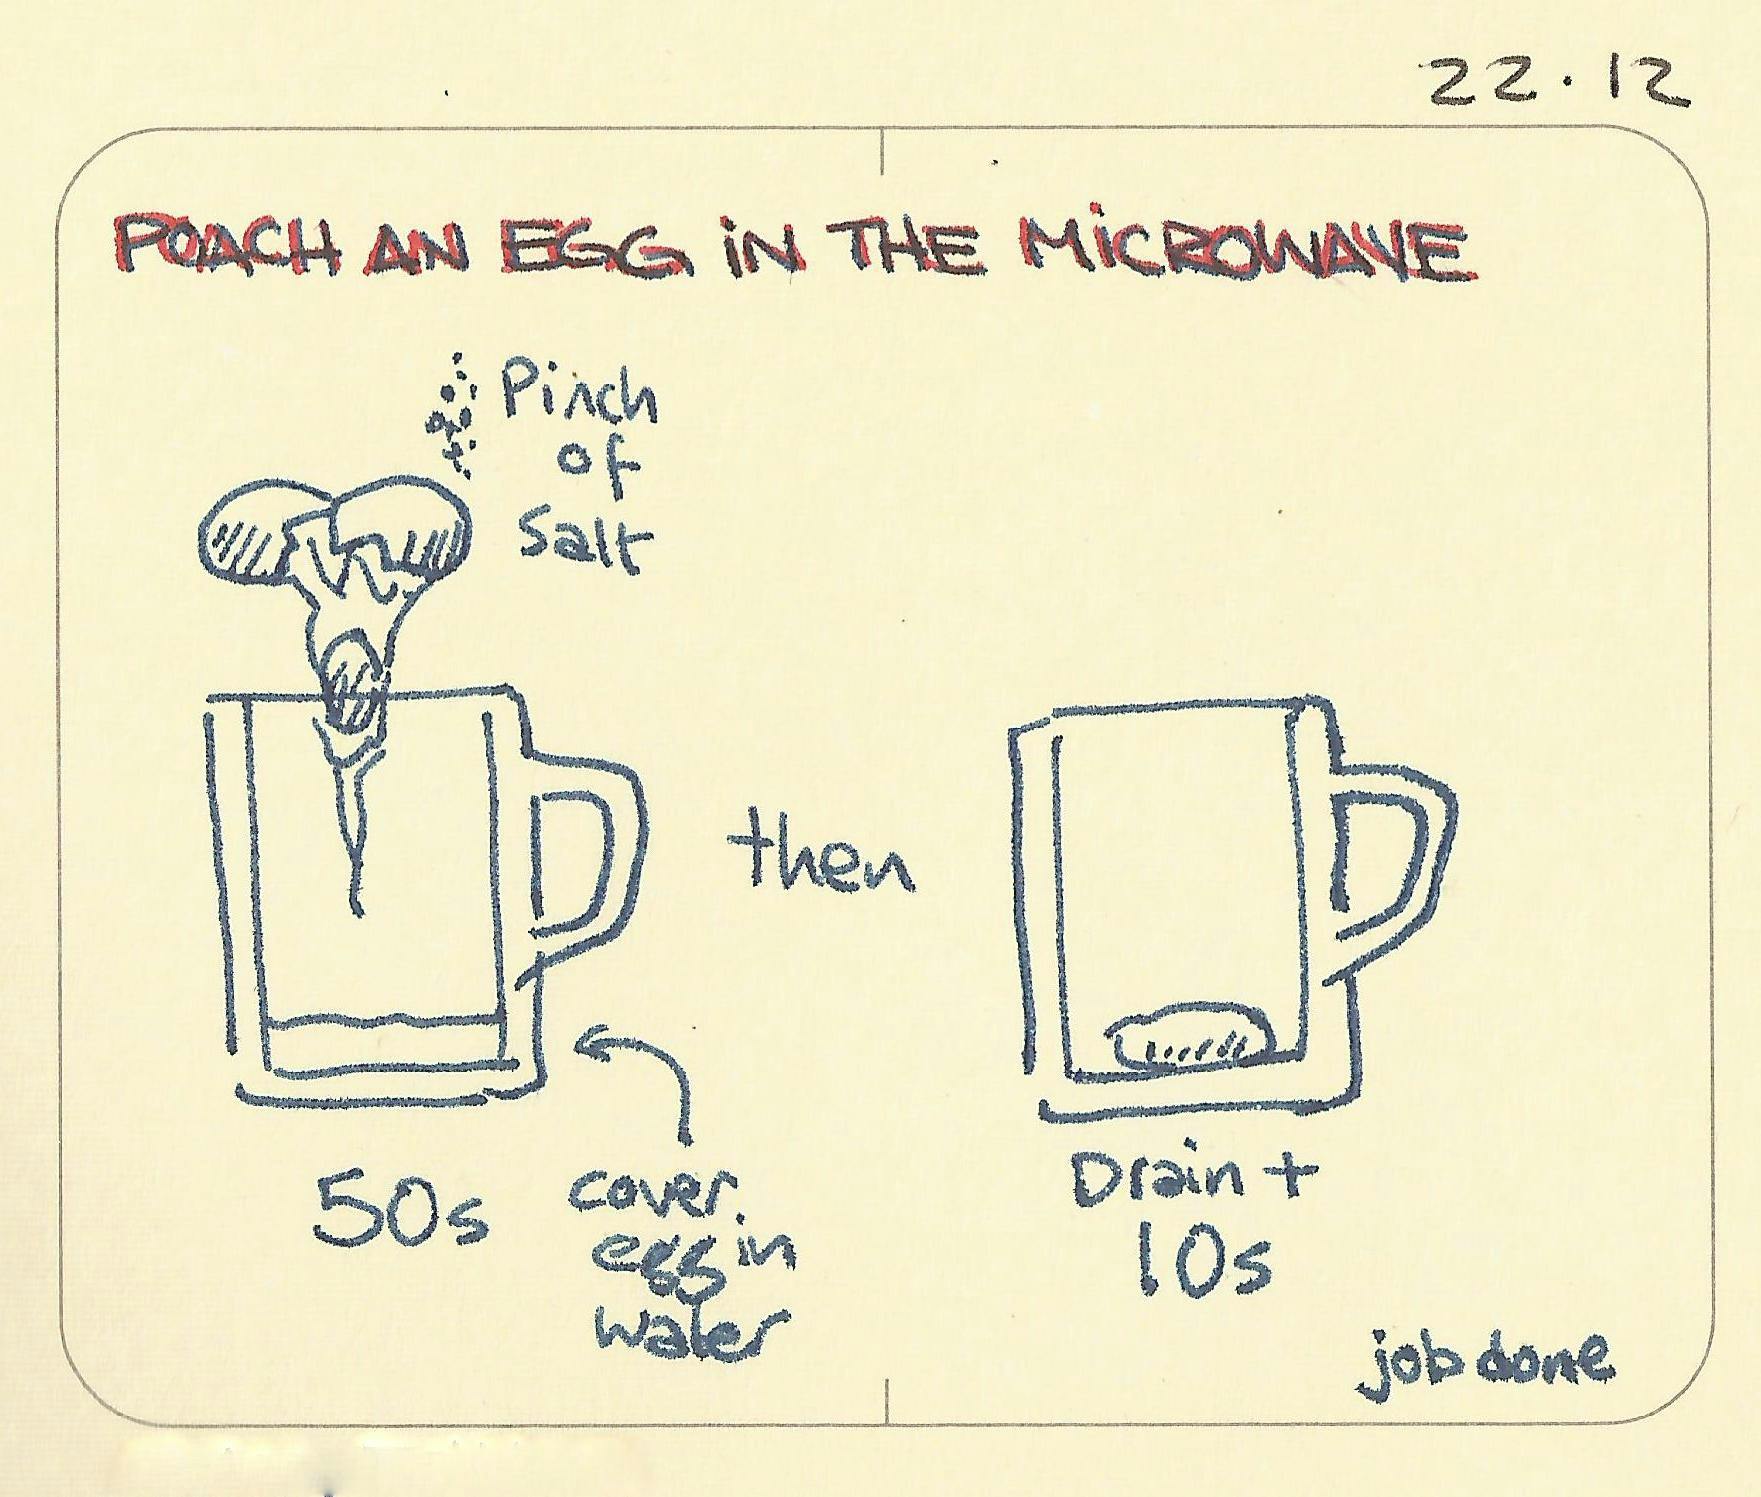 22.12
POACH AN EGG IN THE MICROWAVE
Pinch
of
Salt
then
50s
cover
egg in
water
Drain +
10s
job done